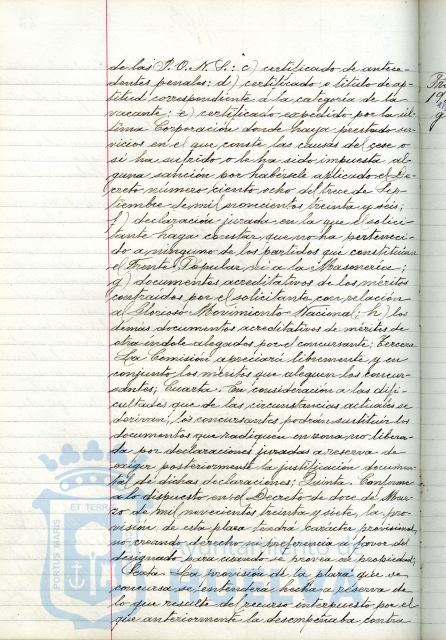 de las J.O.N.S.: c) certificado de antece-
dentes penales: d) certificado o título de ap-
titud correspondiente a la categoría de la
vacante; e) certificado expedido por la úl-
tima Corporación donde haya prestado ser-
vicios en el que conste las causas del cese o
si ha sufrido o le ha sido impuesta al-
guna sanción por habérsele aplicado el De-
creto número ciento ocho del trece de Sep-
tiembre de mil novecientos treinta y seis;
f) declaración jurada en la que el solici-
tante haga constar que no ha perteneci-
do a ninguno de los partidos que constituían
el Frente Popular ni a la Masonería;
g) documentos acreditativos de los méritos
contraídos por el solicitante con relación
al Glorioso Movimiento Nacional; h) los
demás documentos acreditativos de méritos de
otra índole alegados por el concursante; Tercera.
La Comisión apreciará libremente y en
conjunto los méritos que aleguen los concur-
santes; Cuarta. En consideración a las difi-
cultades que de las circunstancias actuales se
derivan, los concursantes podrán sustituir los
documentos que radiquen en zona no libera-
da por declaraciones juradas a reserva de
exigir posteriormente la justificación documen-
tal de dichas declaraciones; Quinta. Conforme
a lo dispuesto en el Decreto de doce de Mar-
zo de mil novecientos treinta y siete, la pro-
visión de esta plaza tendrá carácter provisional,
no creando derecho ni preferencia a favor del
designado para cuando se provea en propiedad;
Sexta. La provisión de la plaza que se
concursa se entenderá hecha a reserva de
lo que resulte del recurso interpuesto por el
que anteriormente la desempeñaba contra
PORTUS MARIS ET TERR
Ayuntamiento de